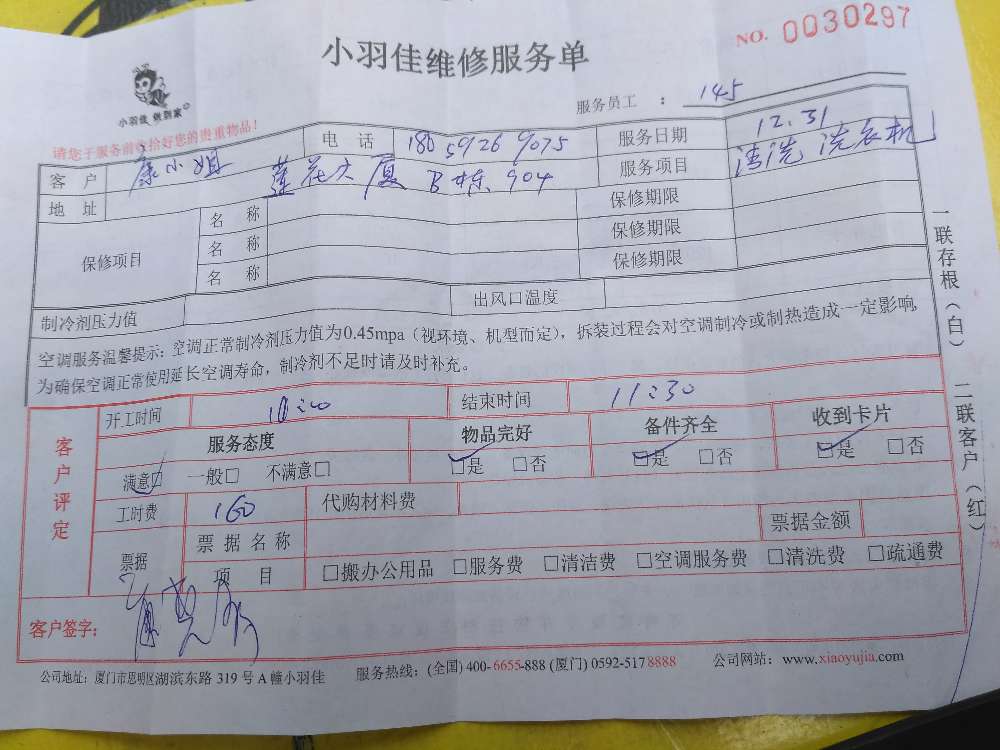 NO. 0030297
小羽佳维修服务单
小羽佳 做到家
服务员工 ： 145
请您于服务前收拾好您的贵重物品！
客 户 康小姐 电 话 180 5926 9075 服务日期 12.31
地 址 莲花大厦 B栋 904 服务项目 清洗 洗衣机
保修项目 名 称 保修期限
名 称 保修期限
名 称 保修期限
制冷剂压力值 出风口温度
空调服务温馨提示：空调正常制冷剂压力值为0.45mpa（视环境、机型而定），拆装过程会对空调制冷或制热造成一定影响，
为确保空调正常使用延长空调寿命，制冷剂不足时请及时补充。
客户评定
开工时间 结束时间 11:30
服务态度 物品完好 备件齐全 收到卡片
满意□ 一般□ 不满意□ □是 □否 □是 □否 □是 □否
工时费 160 代购材料费
票据 票据名称 票据金额
项 目 □搬办公用品 □服务费 □清洁费 □空调服务费 □清洗费 □疏通费
客户签字：
一联存根（白） 二联客户（红）
公司地址：厦门市思明区湖滨东路 319 号 A 幢小羽佳 服务热线：(全国) 400-6655-888 (厦门) 0592-5178888 公司网站：www.xiaoyujia.com